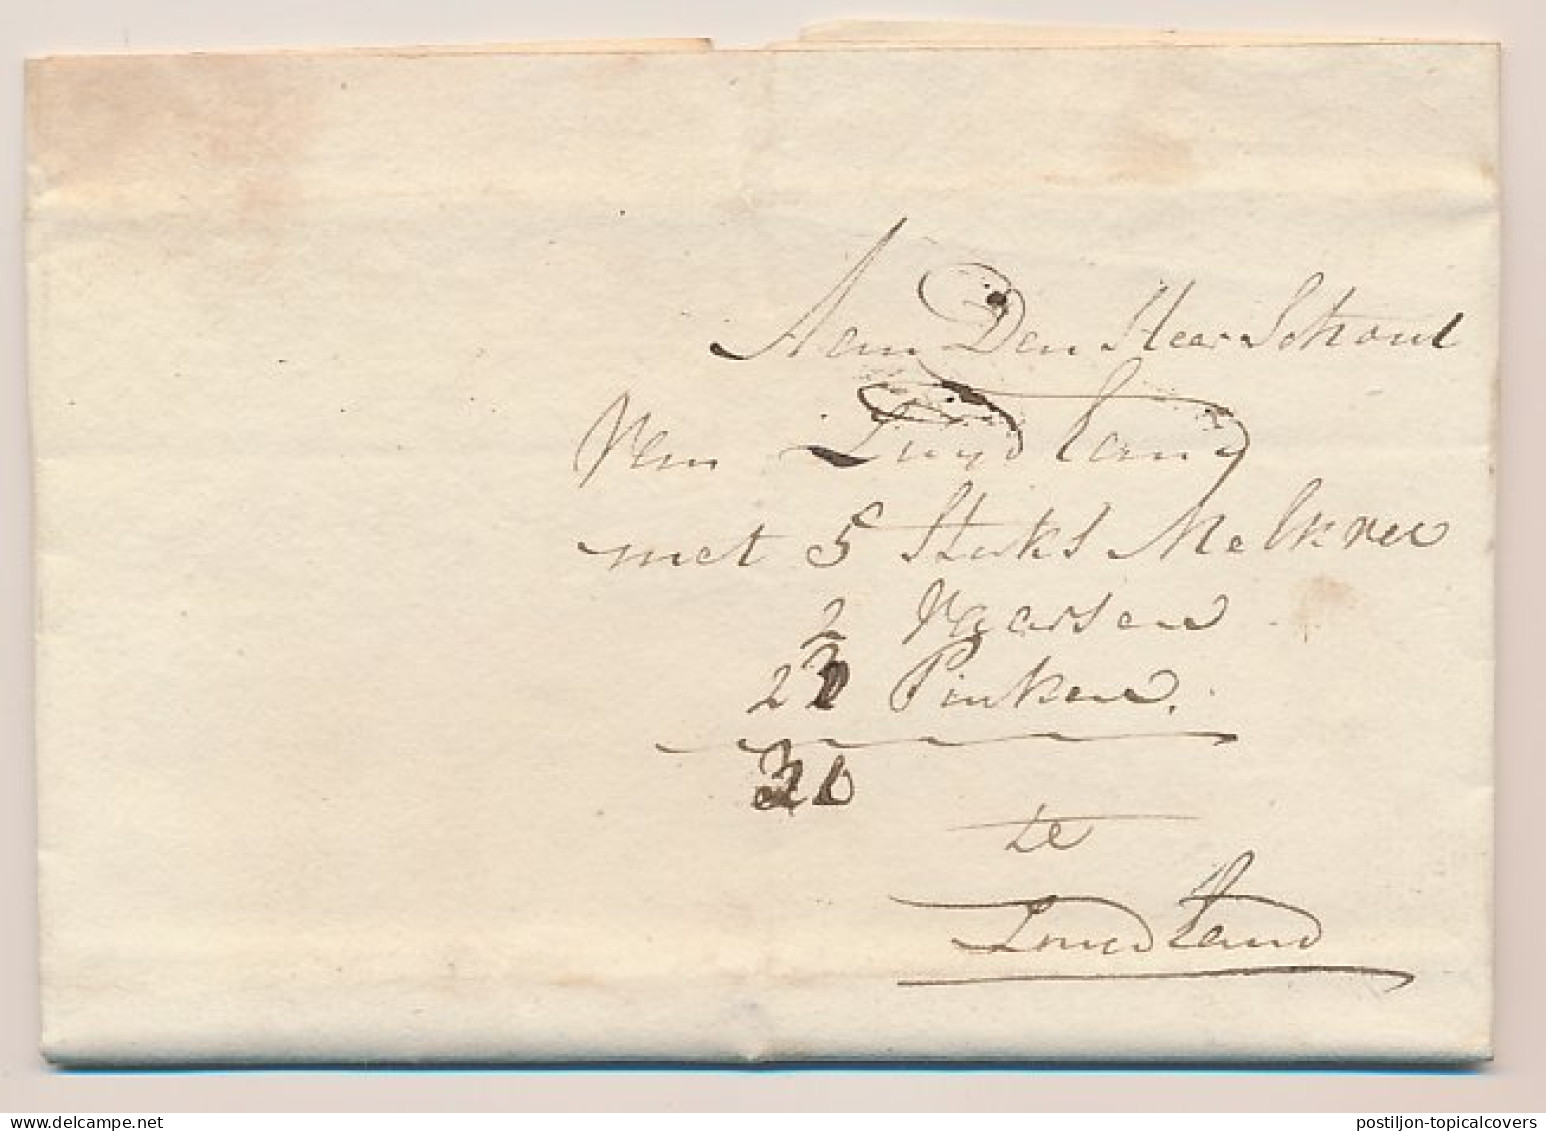 Aan Den Heer Schout
Van Zuyd Land
met 5 Stuks Melkvee
2 Vaarsen
23 Pinken.
30
te
Zuyd Land
postiljon-topicalcovers